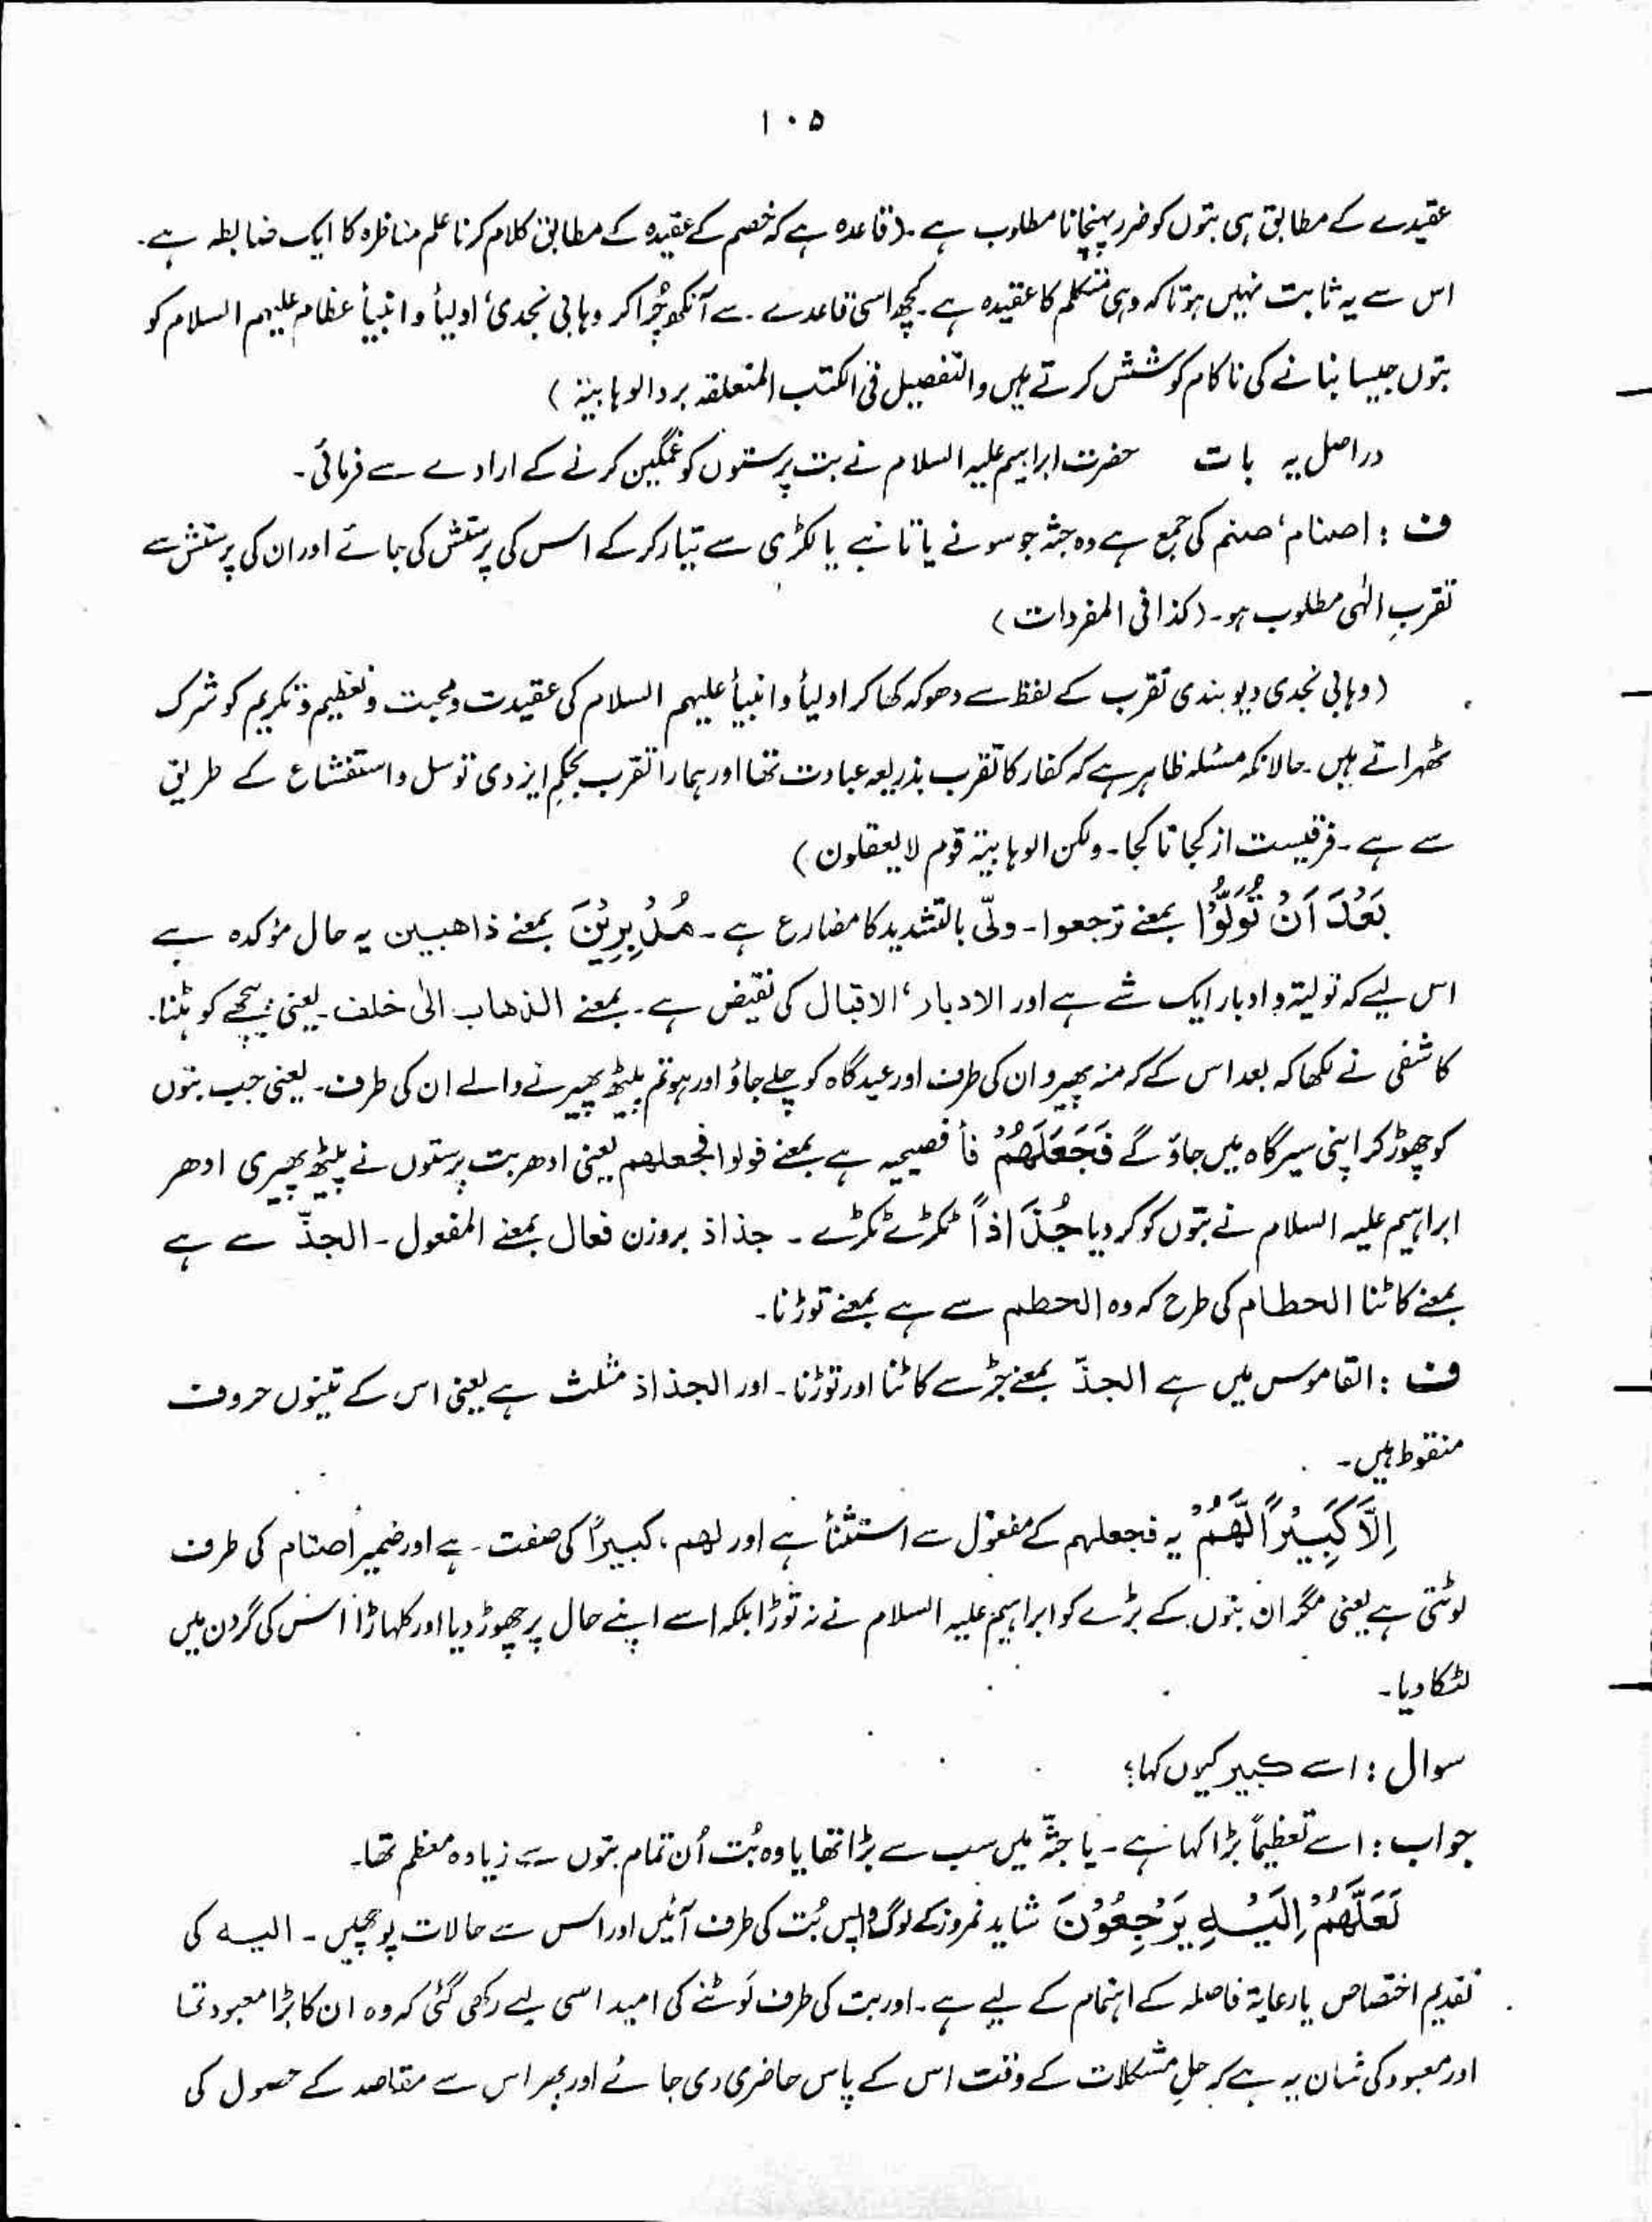 ۱۰۵
عقیدے کے مطابق ہی بتوں کو ضرر پہنچانا مطلوب ہے۔ (قاعدہ ہے کہ خصم کے عقیدہ کے مطابق کلام کرنا علم مناظرہ کا ایک ضابطہ ہے۔
اس سے یہ ثابت نہیں ہوتا کہ وہی متکلم کا عقیدہ ہے۔ کچھ اسی قاعدے۔ سے آنکھ چُرا کر وہابی نجدی، اولیأ و انبیأ عظام علیہم السلام کو
بتوں جیسا بنانے کی ناکام کوشش کرتے ہیں والتفصیل فی الکتب المتعلقہ برد الوہابیۃ)
دراصل یہ بات حضرت ابراہیم علیہ السلام نے بت پرستوں کو غمگین کرنے کے ارادے سے فرمائی۔
ف : اصنام، صنم کی جمع ہے وہ جثہ جو سونے یا تانبے یا لکڑی سے تیار کر کے اس کی پرستش کی جائے اور ان کی پرستش سے
تقربِ الٰہی مطلوب ہو۔ (کذا فی المفردات)
(وہابی نجدی دیوبندی تقرب کے لفظ سے دھوکہ کھا کر اولیأ و انبیأ علیہم السلام کی عقیدت و محبت و تعظیم و تکریم کو شرک
ٹھہراتے ہیں۔ حالانکہ مسئلہ ظاہر ہے کہ کفار کا تقرب بذریعہ عبادت تھا اور ہمارا تقرب بحکمِ ایزدی توسل و استفشاع کے طریق
سے ہے۔ فرقیست از کجا تا کجا۔ ولکن الوہابیۃ قوم لا یعقلون)
بَعْدَ اَنْ تُوَلُّوْا بمعنے ترجعوا۔ ولّی بالتشدید کا مضارع ہے۔ مُدْبِرِیْنَ بمعنے ذاھبین یہ حال مؤکدہ ہے
اس لیے کہ تولیۃ و ادبار ایک شے ہے اور الادبار، الاقبال کی نقیض ہے۔ بمعنے الذھاب الیٰ خلف۔ یعنی پیچھے کو ہٹنا۔
کاشفی نے لکھا کہ بعد اس کے کہ منہ پھیرو ان کی طرف اور عیدگاہ کو چلے جاؤ اور ہو تم پیٹھ پھیرنے والے ان کی طرف۔ یعنی جب بتوں
کو چھوڑ کر اپنی سیرگاہ میں جاؤ گے فَجَعَلَھُمْ فأ فصیحیہ ہے بمعنے فولوا فجعلھم یعنی ادھر بت پرستوں نے پیٹھ پھیری ادھر
ابراہیم علیہ السلام نے بتوں کو کر دیا جُذَاذاً ٹکڑے ٹکڑے۔ جذاذ بروزن فعال بمعنے المفعول۔ الجذّ سے ہے
بمعنے کاٹنا الحطام کی طرح کہ وہ الحطم سے ہے بمعنے توڑنا۔
ف : القاموس میں ہے الجذّ بمعنے جڑ سے کاٹنا اور توڑنا۔ اور الجذاذ مثلث ہے یعنی اس کے تینوں حروف
منقوط ہیں۔
اِلَّا کَبِیْراً لَّھُمْ یہ فجعلہم کے مفعول سے استثنأ ہے اور لھم، کبیراً کی صفت۔ ہے اور ضمیر اصنام کی طرف
لوٹتی ہے یعنی مگر ان بتوں کے بڑے کو ابراہیم علیہ السلام نے نہ توڑا بلکہ اسے اپنے حال پر چھوڑ دیا اور کلہاڑا اس کی گردن میں
لٹکا دیا۔
سوال : اسے کبیر کیوں کہا؟
جواب : اسے تعظیماً بڑا کہا ہے۔ یا جثّہ میں سب سے بڑا تھا یا وہ بُت اُن تمام بتوں سے زیادہ معظم تھا۔
لَعَلَّھُمْ اِلَیْہِ یَرْجِعُوْنَ شاید نمروز کے لوگ واپس بُت کی طرف آئیں اور اس سے حالات پوچھیں۔ الیہ کی
تقدیم اختصاص یا رعایۃ فاصلہ کے اہتمام کے لیے ہے۔ اور بت کی طرف لَوٹنے کی امید اسی لیے رکھی گئی کہ وہ ان کا بڑا معبود تھا
اور معبود کی شان یہ ہے کہ حلِ مشکلات کے وقت اس کے پاس حاضری دی جائے اور پھر اس سے مقاصد کے حصول کی